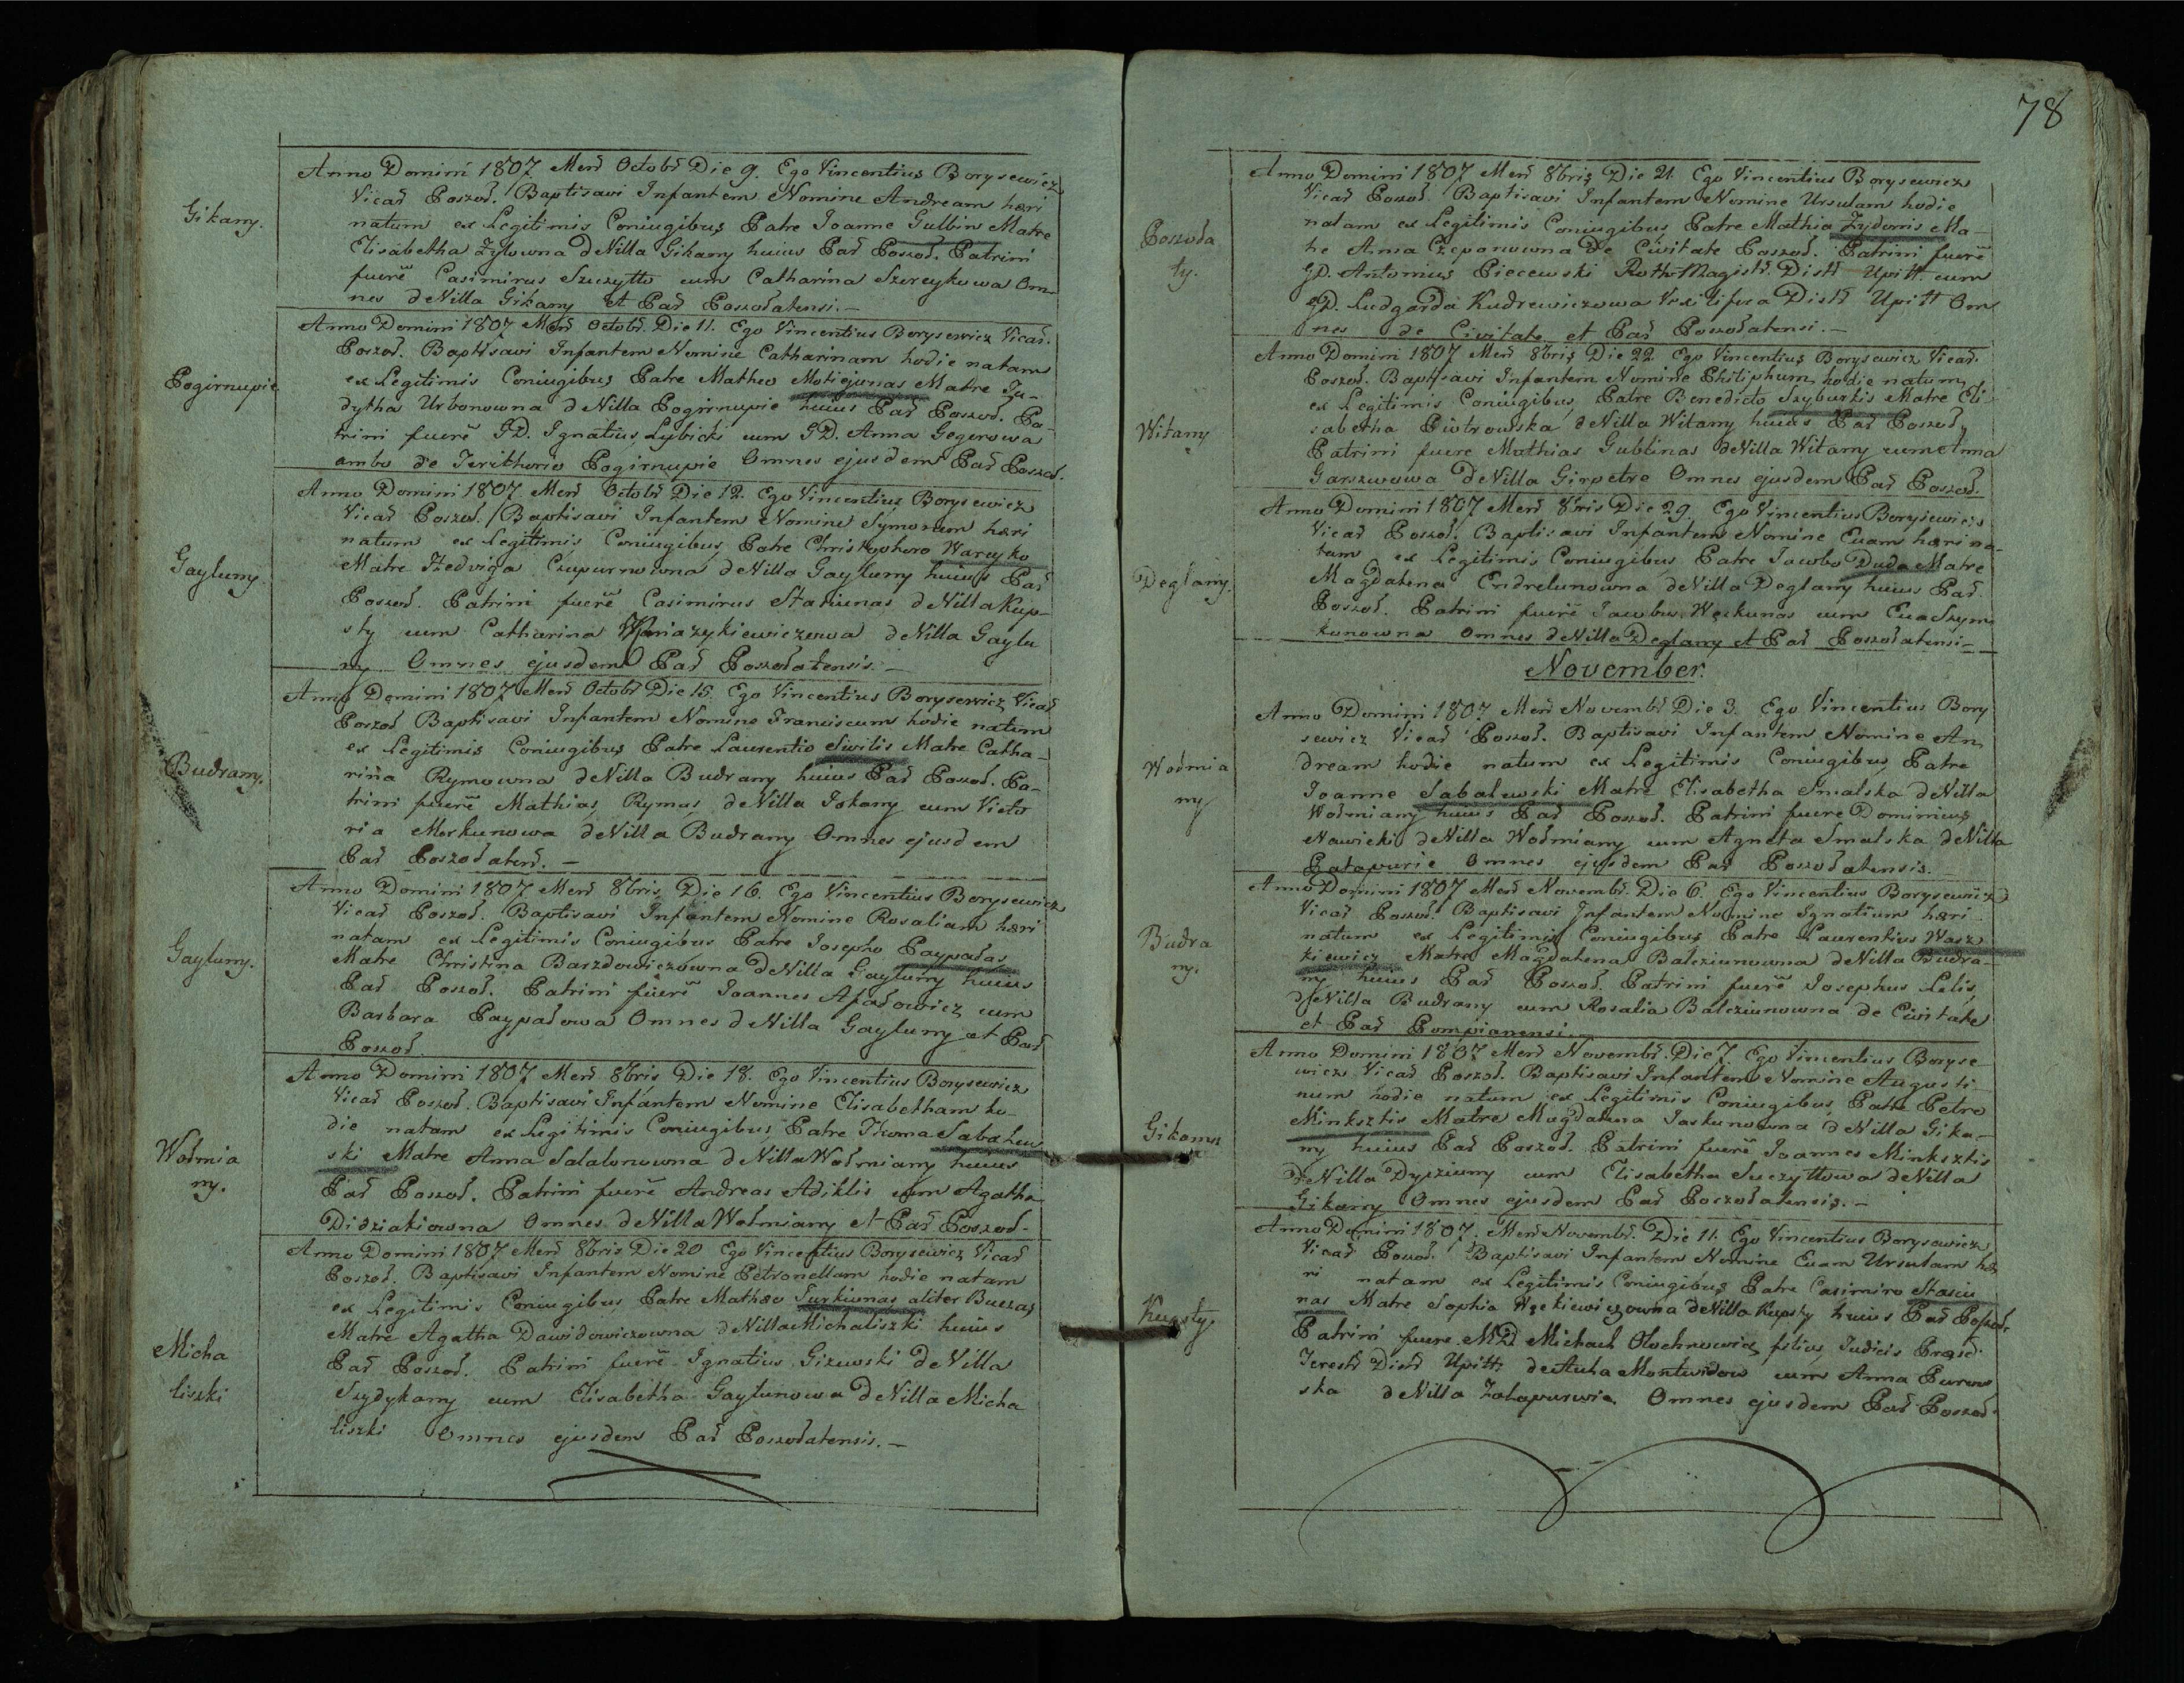 Gikany.
Anno Domini 1807 Mens Octobr Die 9. Ego Vincentius Borysewicz
Vicar Poszoł. Baptisavi Infantem Nomine Andream hæri
natum ex Legitimis Coniugibus Patre Joanne Gulbin Matre
Elisabetha Zylowna de Villa Gikany huius Par Poszoł. Patrini
fuere Casimirus Szuzytto cum Catharina Szereykowa Om-
nes de Villa Gikany et Par Poszołatensi. —
Pogirnupie
Anno Domini 1807 Mens Octobr. Die 11. Ego Vincentius Borysewicz Vicar.
Poszoł. Baptisavi Infantem Nomine Catharinam hodie natam
ex Legitimis Coniugibus Patre Matheo Motiejunas Matre Ju-
dytha Urbonowna de Villa Pogirnupie huius Par Poszoł. Pa-
trini fuere GD. Ignatius Lybicki cum GD. Anna Gegerowa
ambo de Terithorio Pogirnupie Omnes ejusdem Par Poszoł.
Gayluny.
Anno Domini 1807. Mens Octobr Die 12. Ego Vincentius Borysewicz
Vicar Poszoł. Baptisavi Infantem Nomine Symonem hæri
natum ex Legitimis Coniugibus Patre Christophoro Wareyko
Matre Hedviga Czupurnowna de Villa Gayluny huius Par
Poszoł. Patrini fuere Casimirus Stasiunas de Villa Kup-
sty cum Catharina Kniazykiewiczowa de Villa Gaylu
ny Omnes ejusdem Par Poszołatensis. —
Budrany.
Anno Domini 1807 Mens Octobr Die 15. Ego Vincentius Borysewicz Vicar
Poszoł Baptisavi Infantem Nomine Franciscum hodie natum
ex Legitimis Coniugibus Patre Laurentio Siwilis Matre Catha-
rina Rymowna de Villa Budrany huius Par Poszoł. Pa-
trini fuere Mathias Rymas de Villa Jokany cum Victo
ria Merkunowa de Villa Budrany Omnes ejusdem
Par Poszołatens. —
Gayluny.
Anno Domini 1807 Mens 8bris Die 16. Ego Vincentius Borysewicz
Vicar Poszoł. Baptisavi Infantem Nomine Rosaliam hæri
natam ex Legitimis Coniugibus Patre Josepho Paypałas
Matre Christina Barzdowiczowna de Villa Gayluny huius
Par Poszoł. Patrini fuere Joannes Apałowicz cum
Barbara Paypałowa Omnes de Villa Gayluny et Par
Poszoł.
Wołmia
ny.
Anno Domini 1807 Mens 8bris Die 18. Ego Vincentius Borysewicz
Vicar Poszoł. Baptisavi Infantem Nomine Elisabetham ho-
die natam ex Legitimis Coniugibus Patre Thoma Sabalew
ski Matre Anna Salalonowna de Villa Wołmiany huius
Par Poszoł. Patrini fuere Andreas Adiklis cum Agatha
Didziakiowna Omnes de Villa Wołmiany et Par Poszoł.
Micha
liszki
Anno Domini 1807 Mens 8bris Die 20 Ego Vincentius Borysewicz Vicar
Poszoł. Baptisavi Infantem Nomine Petronellam hodie natam
ex Legitimis Coniugibus Patre Mathæo Jurkiunas aliter Buczas
Matre Agatha Dawidowiczowna de Villa Michaliszki huius
Par Poszoł. Patrini fuere Ignatius Gizewski de Villa
Szydykany cum Elisabetha Gaylunowa de Villa Micha
liszki Omnes ejusdem Par Poszołatensis. —
78
Poszoła
ty.
Anno Domini 1807 Mens 8bris Die 21. Ego Vincentius Borysewicz
Vicar Poszoł. Baptisavi Infantem Nomine Ursulam hodie
natam ex Legitimis Coniugibus Patre Mathia Zydonis Ma-
tre Anna Czeponowna de Civitate Poszoł. Patrini fuere
GD. Antonius Piecewski Roth-Magistr. Distr Upitt cum
GD. Ludgarda Kudrewiczowa Vexilifera Distr Upitt Om
nes de Civitate et Par Poszołatensi. —
Witany
Anno Domini 1807 Mens 8bris Die 22. Ego Vincentius Borysewicz Vicar.
Poszoł. Baptisavi Infantem Nomine Philiphum hodie natum
ex Legitimis Coniugibus Patre Benedicto Szyburkis Matre Eli-
sabetha Piotrowska de Villa Witany huius Par Poszoł.
Patrini fuere Mathias Gublinas de Villa Witany cum Anna
Garszwowa de Villa Girpetre Omnes ejusdem Par Poszoł.
Deglany.
Anno Domini 1807 Mens 8bris Die 29. Ego Vincentius Borysewicz
Vicar Poszoł. Baptisavi Infantem Nomine Euam hæri na-
tam ex Legitimis Coniugibus Patre Jacobo Duda Matre
Magdalena Endrelunowna de Villa Deglany huius Par
Poszoł. Patrini fuere Jacobus Węckunas cum Eua Szym
kunowna Omnes de Villa Deglany et Par Poszołatensi—
November.
Wołmia
ny
Anno Domini 1807 Mens Novembr Die 3. Ego Vincentius Bory
sewicz Vicar Poszoł. Baptisavi Infantem Nomine An
dream hodie natum ex Legitimis Coniugibus Patre
Joanne Sabalewski Matre Elisabetha Smalska de Villa
Wołmiany huius Par Poszoł. Patrini fuere Dominicus
Nawicki de Villa Wołmiany cum Agneta Smalska de Villa
Omnes ejusdem Par Poszołatensis.
Budra
ny.
Anno Domini 1807 Mens Novembr. Die 6. Ego Vincentius Borysewicz
Vicar Poszoł. Baptisavi Infantem Nomine Ignatium hæri
natum ex Legitimis Coniugibus Patre Laurentius Wasz
kiewicz Matre Magdalena Balcziunowna de Villa Budra-
ny huius Par Poszoł. Patrini fuere Josephus Lelis
de Villa Budrany cum Rosalia Balcziunowna de Civitate
et Par Pompianensi. —
Gikany
Anno Domini 1807 Mens Novembr. Die 7. Ego Vincentius Boryse
wicz Vicar Poszoł. Baptisavi Infantem Nomine Augusti
num hodie natum ex Legitimis Coniugibus Patre Petro
Minksztis Matre Magdalena Jaskunowna de Villa Gika-
ny huius Par Poszoł. Patrini fuere Joannes Minksztis
de Villa Dypziuny cum Elisabetha Suczyttowa de Villa
Gikany Omnes ejusdem Par Poszołatensis. —
Kupsty
Anno Domini 1807. Mens Novembr. Die 11. Ego Vincentius Borysewicz
Vicar Poszoł. Baptisavi Infantem Nomine Euam Ursulam hæ
ri natam ex Legitimis Coniugibus Patre Casimiro Stasiu
nas Matre Sophia Węckiewiczowna de Villa Kupsty huius Par Poszoł.
Patrini fuere MD Michael Olechnowicz filius Judicis Præsid
Terestr Distr Upitt de Aula Montwidow cum Anna Purew
ska de Villa Omnes ejusdem Par Poszoł.